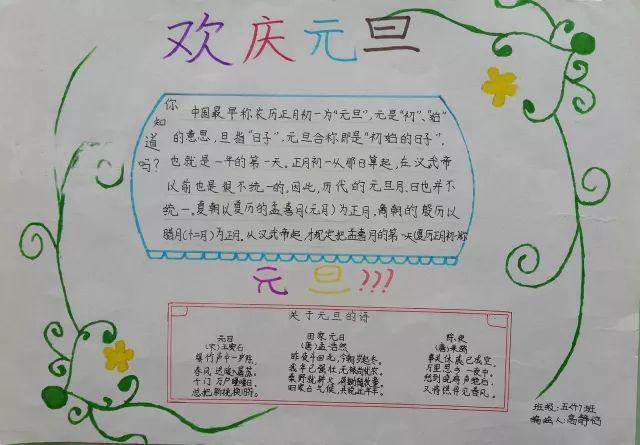 欢庆元旦
你知道吗?
中国最早称农历正月初一为“元旦”,元是“初”、“始”
的意思,旦指“日子”,元旦合称即是“初始的日子”,
也就是一年的第一天。正月初一从那日算起,在汉武帝
以前也是很不统一的。因此,历代的元旦月、日也并不
统一。夏朝以夏历的孟喜月(元月)为正月,商朝的殷历以
腊月(十二月)为正月。从汉武帝起,才规定把孟喜月的第一天(夏历正月初一)称
元旦???
关于元旦的诗
元日
(宋)王安石
爆竹声中一岁除,
春风送暖入屠苏。
千门万户曈曈日,
总把新桃换旧符。
田家元日
(唐)孟浩然
昨夜斗回北,今朝岁起东。
我年已强壮,无禄尚忧农。
桑野就耕父,荷锄随牧童。
田家占气候,共说此年丰。
除夜
(唐)来鹄
事关休戚已成空,
万里思乡一夜中。
愁到晓鸡声绝后,
又将憔悴见春风。
班级:五(4)班
编绘人:高静怡